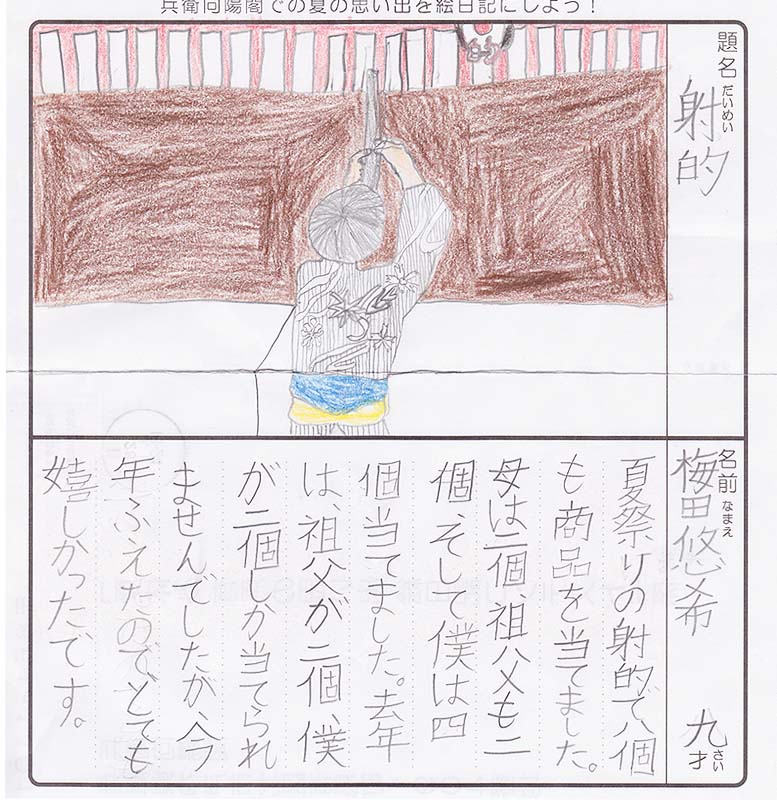 兵衛向陽閣での夏の思い出を絵日記にしよう！
題名 だいめい
射的
名前 なまえ
梅田悠希 九才 さい
夏祭りの射的で、八個
も商品を当てました。
母は二個、祖父も二
個、そして僕は四
個当てました。去年
は、祖父が二個、僕
が二個しか当てられ
ませんでしたが、今
年ふえたので、とても
嬉しかったです。